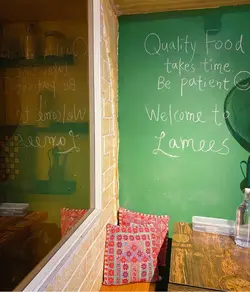 Quality Food
takes time
Be patient
Welcome to
Lamees